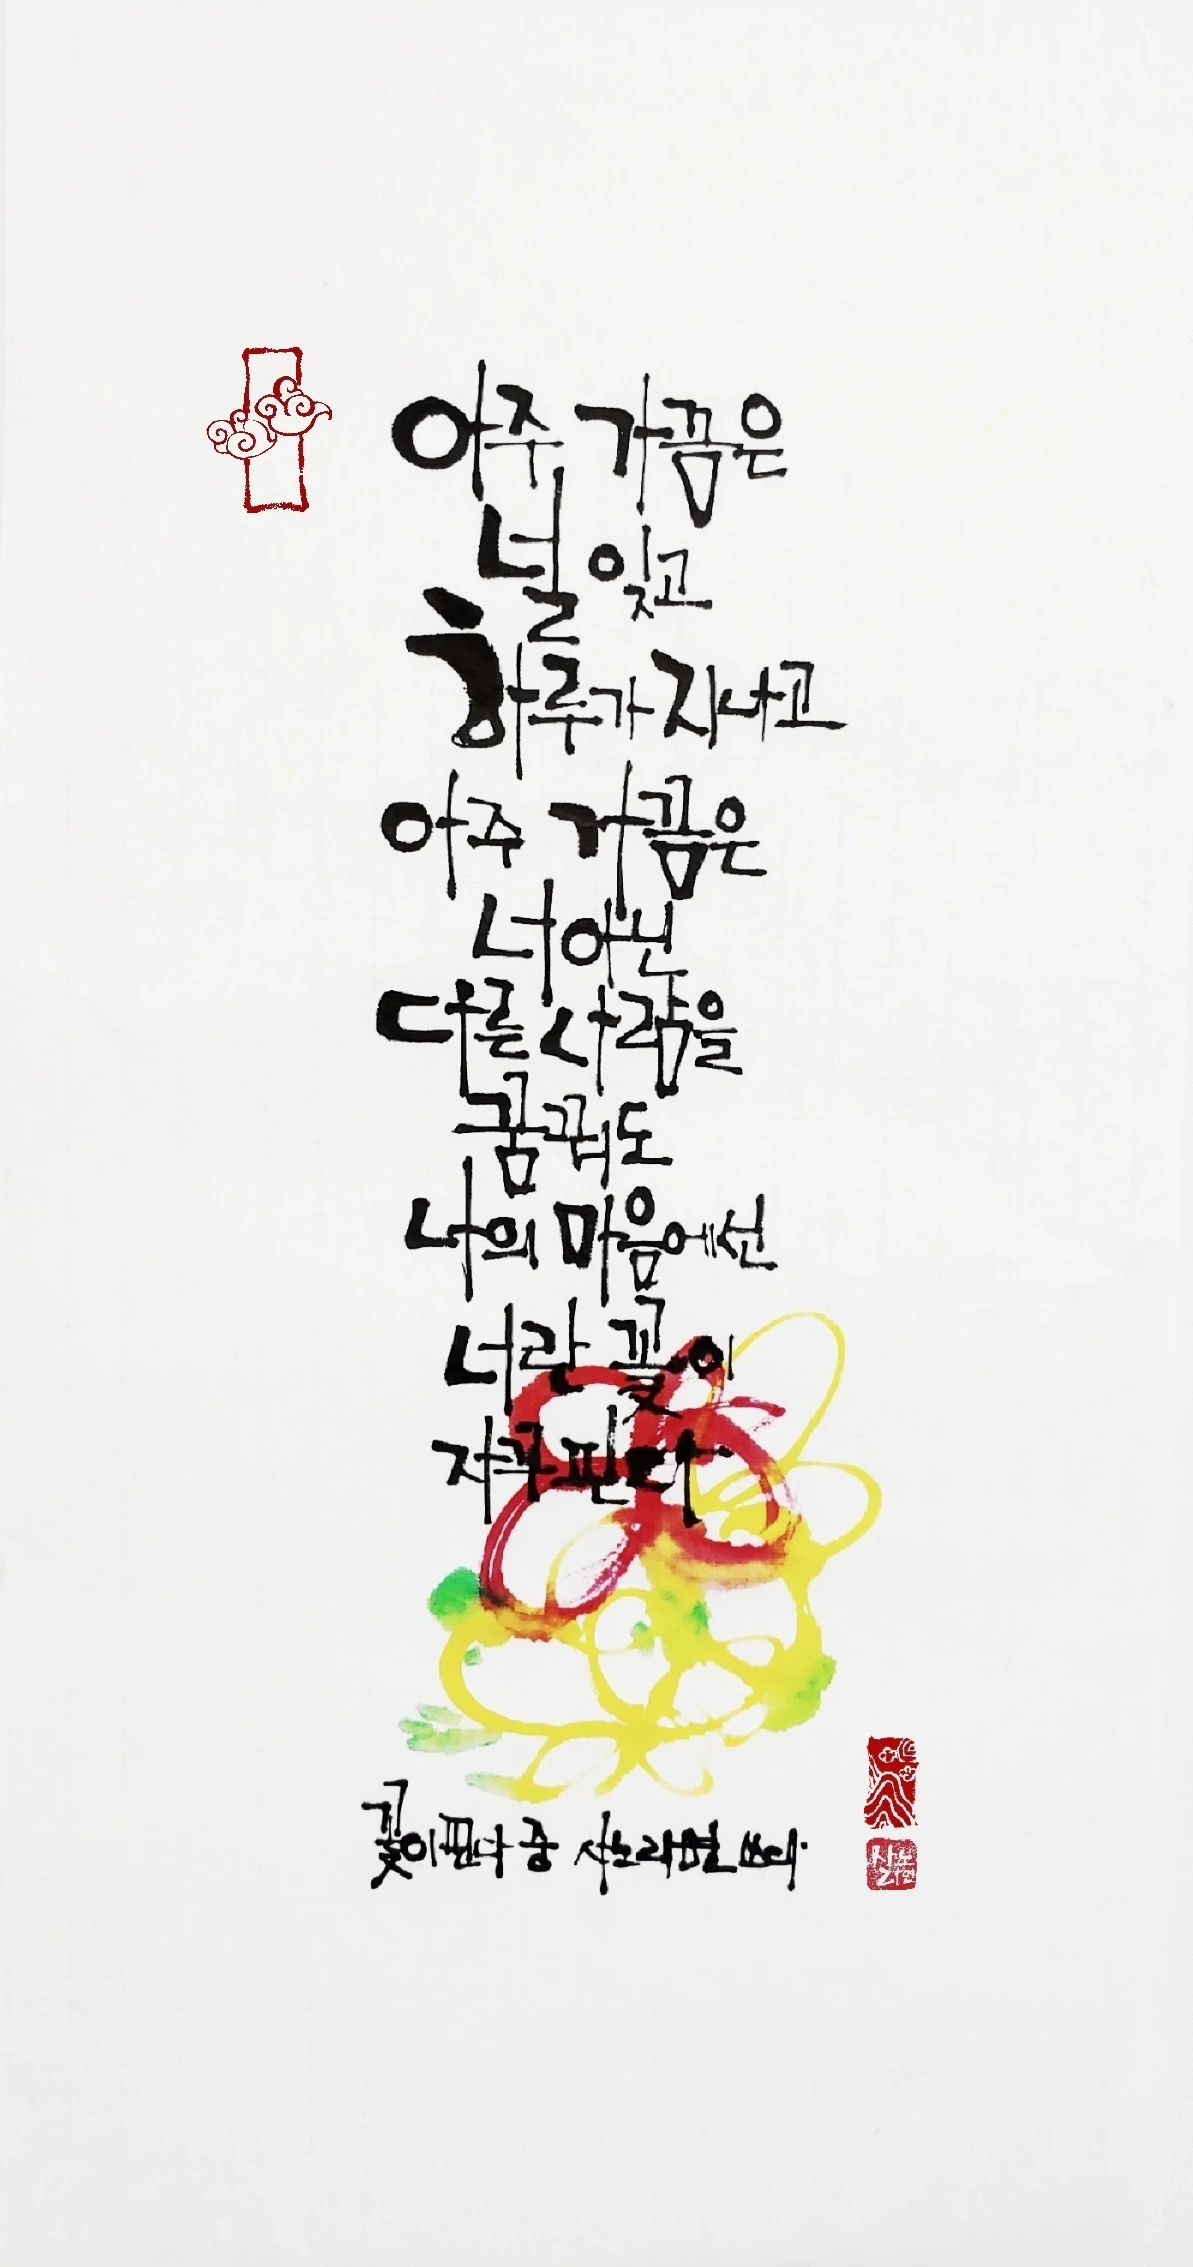 아주 가끔은
널 잊고
하루가 지나고
아주 가끔은
너 아닌
다른 사람을
꿈꿔도
나의 마음에선
너란 꽃이
자꾸 핀다
꽃이 핀다 중 사노라면 쓰다